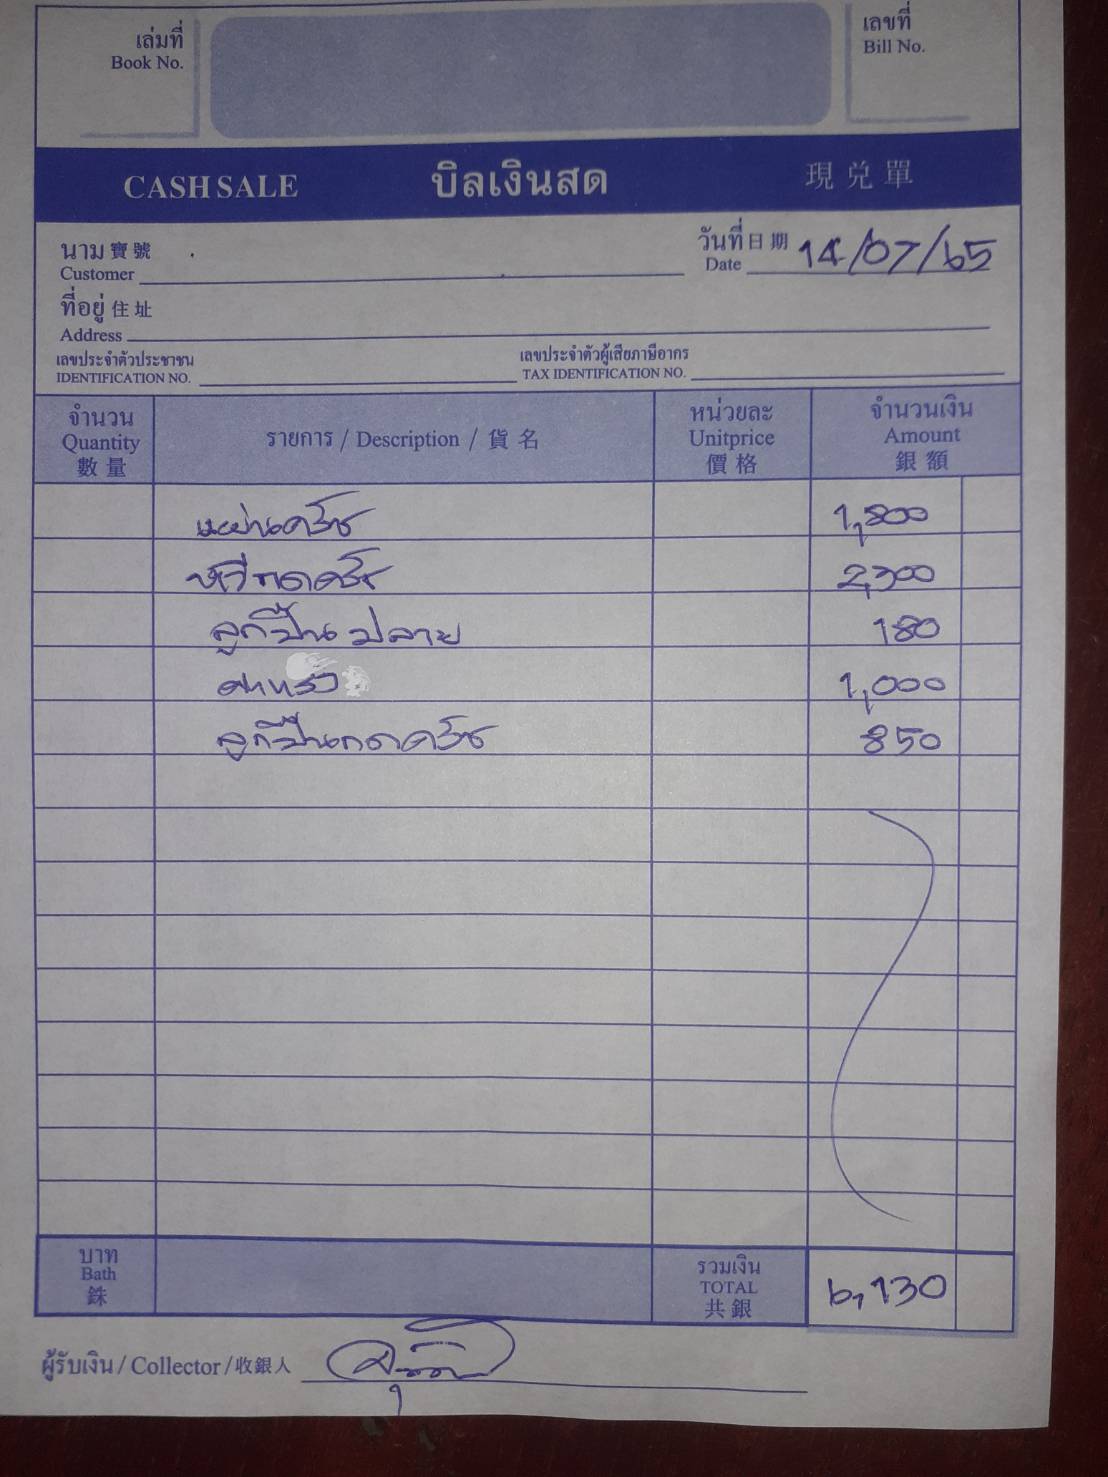 เล่มที่
Book No.
เลขที่
Bill No.
CASH SALE บิลเงินสด 現兌單
นาม 寶號
Customer
วันที่ 日期 14/07/65
Date
ที่อยู่ 住址
Address
เลขประจำตัวประชาชน
IDENTIFICATION NO.
เลขประจำตัวผู้เสียภาษีอากร
TAX IDENTIFICATION NO.
จำนวน
Quantity
數量
รายการ / Description / 貨名
หน่วยละ
Unitprice
價格
จำนวนเงิน
Amount
銀額
1,800
2,300
ลูกปืน ปลาย 180
1,000
ลูกปืนกดครัช 850
บาท
Bath
銖
รวมเงิน
TOTAL
共銀
6,130
ผู้รับเงิน / Collector / 收銀人